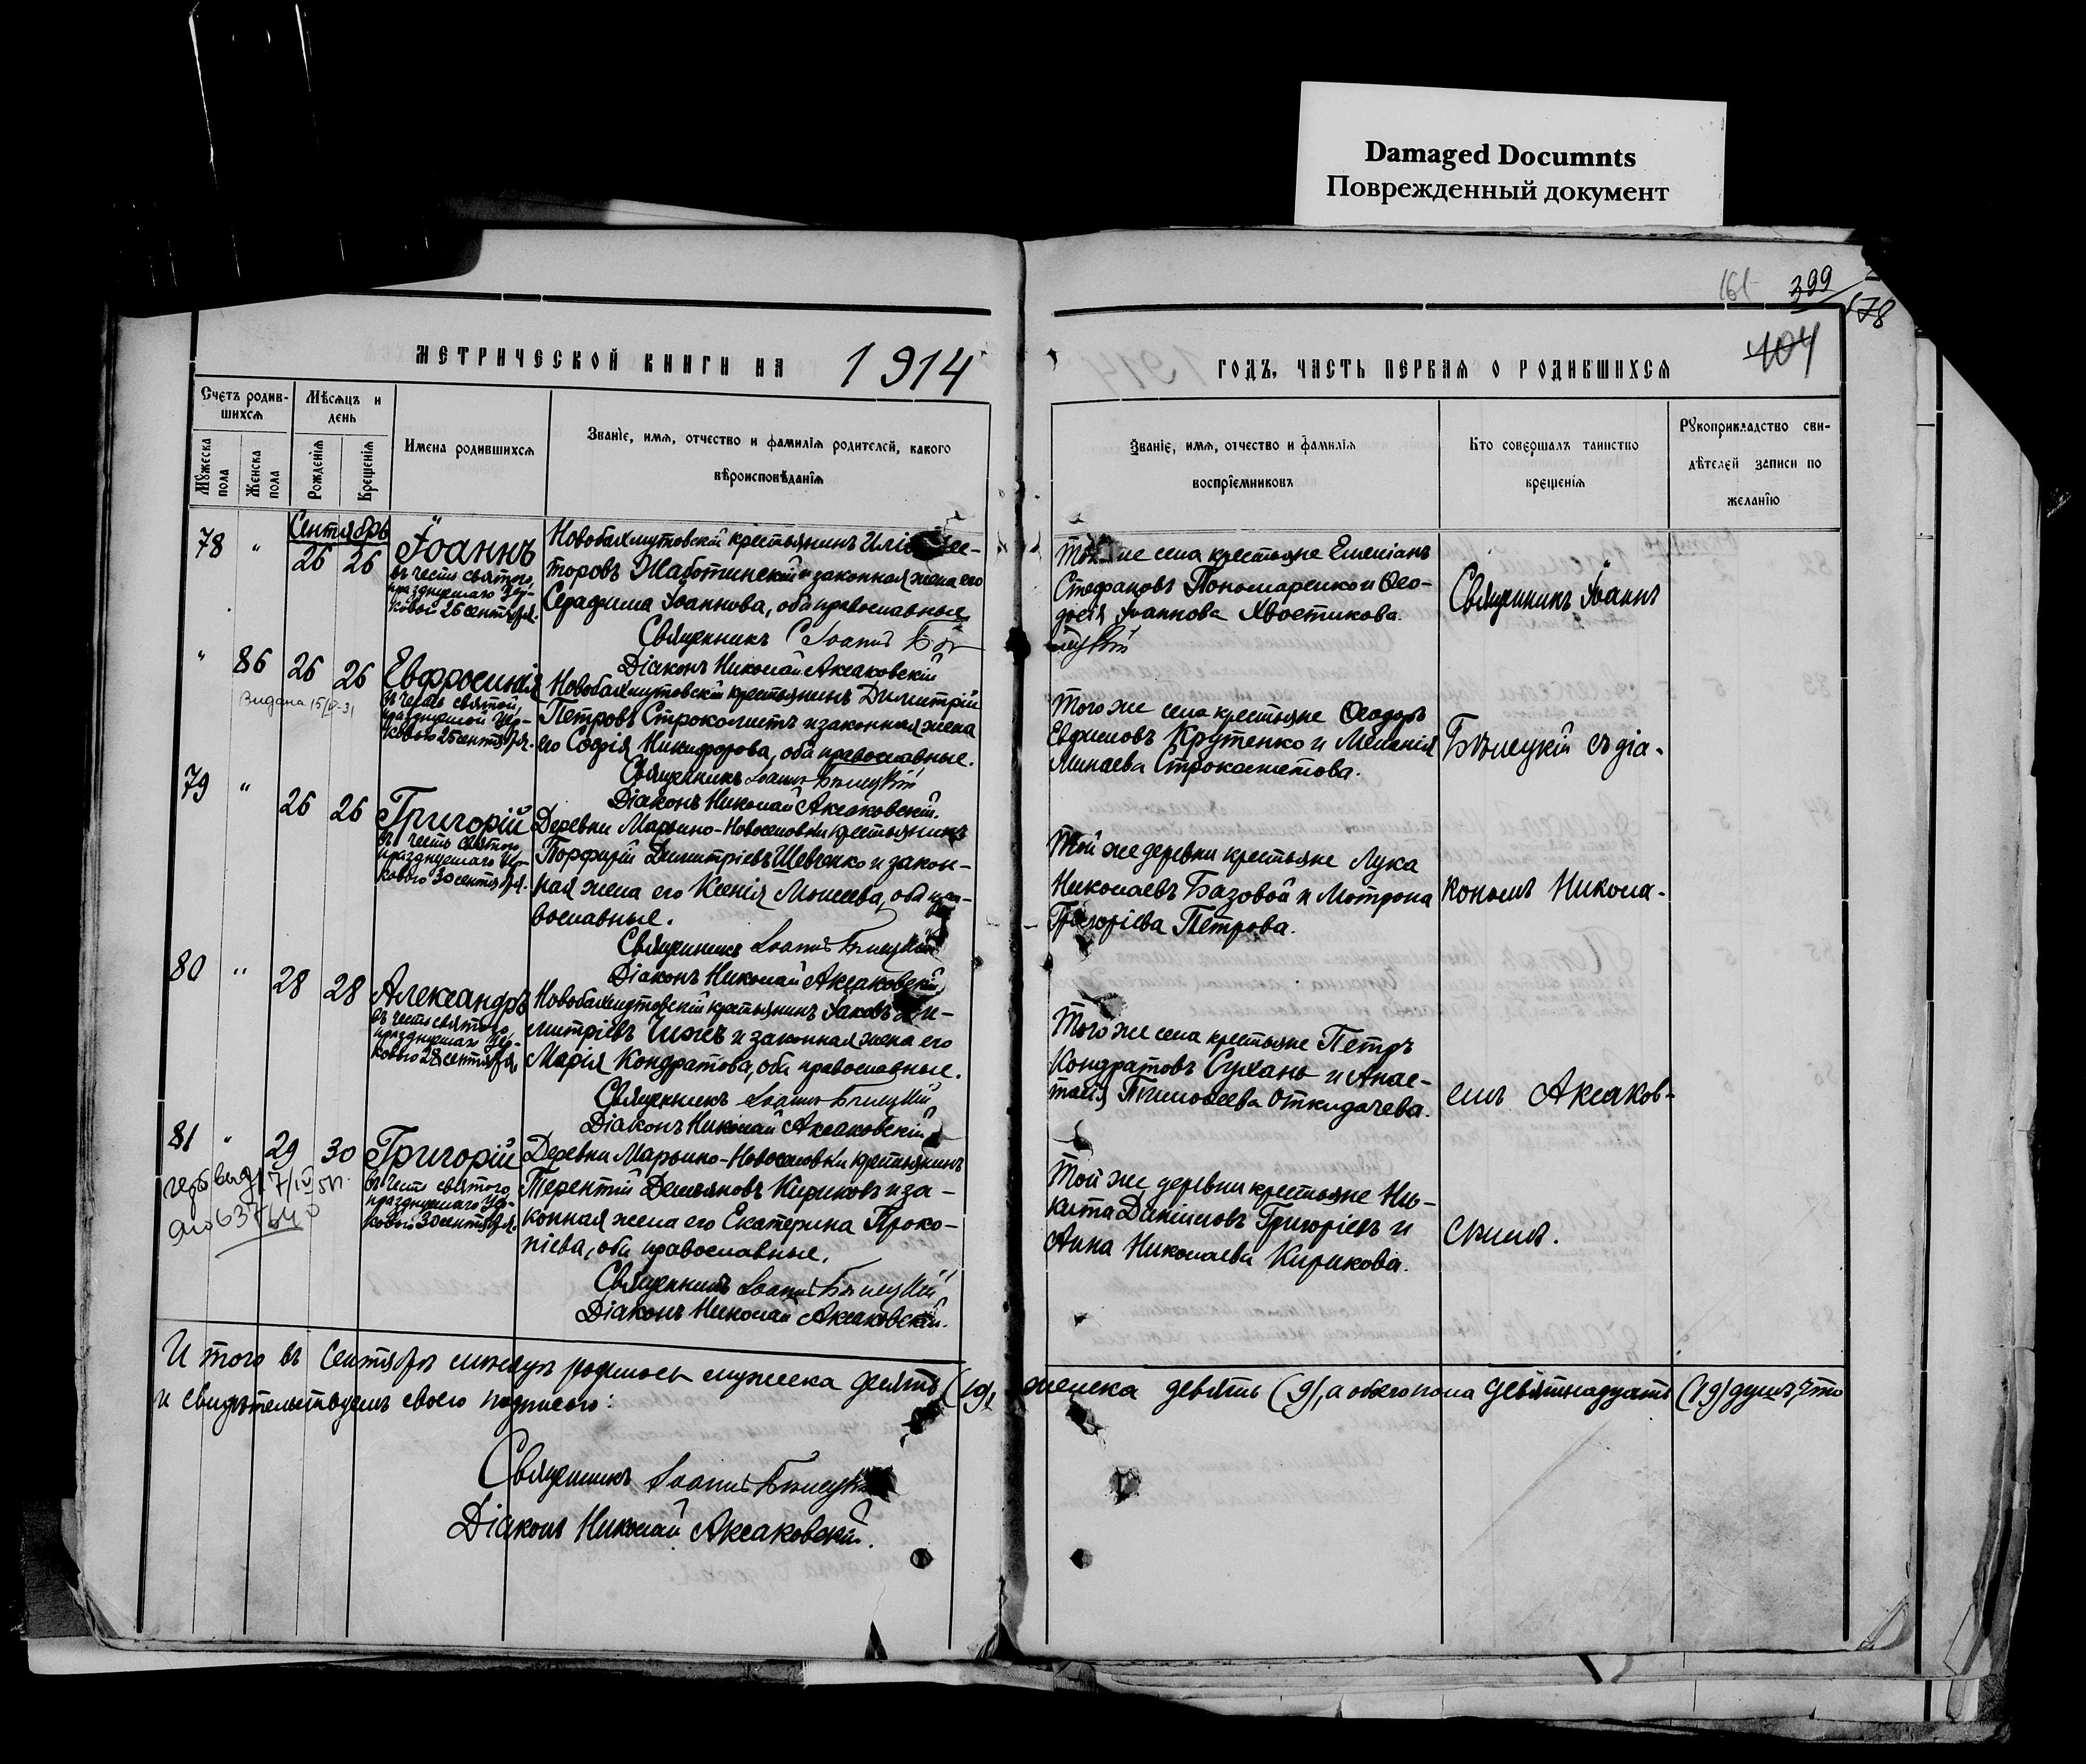 Damaged Documnts
Поврежденный документ
161
399
178
404
МЕТРИЧЕСКОЙ КНИГИ НА 1914
ГОДЪ, ЧАСТЬ ПЕРВАЯ О РОДИВШИХСЯ
Счетъ родив-
шихся
Мужеска
пола
Женска
пола
Мѣсяцъ и
день
Рожденія
Крещенія
Имена родившихся
Званіе, имя, отчество и фамилія родителей, какого
вѣроисповѣданія
Званіе, имя, отчество и фамилія
воспріемниковъ
Кто совершалъ таинство
крещенія
Рукоприкладство сви-
дѣтелей записи по
желанію
Сентябрь
78 " 26 26
Іоаннъ
въ честь святого,
празднуемаго Цер-
ковью 26 сентября.
Новобахмутовскій крестьянинъ
торовъ Жаботинскій и законная жена его
Серафима Іоаннова, оба православные.
Священникъ Іоаннъ
Діаконъ Николай Аксаковскій
же села крестьяне Емеліанъ
Стефановъ Пономаренко и Ѳео-
досія Іоаннова Хвостикова.
" 86 26 26
Видана 15/IV-31
Евфросинія
въ честь святой,
празднуемой Цер-
ковью 25 сентября.
Новобахмутовскій крестьянинъ Димитрій
Петровъ Строкаметъ и законная жена
его Софія Никифорова, оба православные.
Священникъ Іоаннъ Бѣлецкій
Діаконъ Николай Аксаковскій.
Того же села крестьяне Ѳеодоръ
Евфимовъ Крутенко и Меланія
Минаева Строкаметова.
79 " 26 26
Григорій
въ честь святого,
празднуемаго Цер-
ковью 30 сентября.
Деревни Марьино-Новоселовки крестьянинъ
Порфирій Димитріевъ Шевченко и закон-
ная жена его Ксенія Моисеева, оба пра-
вославные.
Священникъ Іоаннъ Бѣлецкій
Діаконъ Николай Аксаковскій
Той же деревни крестьяне Лука
Николаевъ Базовой и Мотрона
Григоріева Петрова.
80 " 28 28
Александръ
въ честь святого,
празднуемаго Цер-
ковью 28 сентября.
Новобахмутовскій крестьянинъ Іаковъ Ди-
митріевъ и законная жена его
Марія Кондратова, оба православные.
Священникъ Іоаннъ Бѣлецкій
Діаконъ Николай Аксаковскій
Того же села крестьяне Петръ
Кондратовъ Сухань и Анас-
тасія Тимоѳеева Откидачева.
81 " 29 30
Григорій
въ честь святого,
празднуемаго Цер-
ковью 30 сентября.
Деревни Марьино-Новоселовки крестьянинъ
Терентій Демьяновъ Кириковъ и за-
конная жена его Екатерина Проко-
піева, оба православные.
Священникъ Іоаннъ Бѣлецкій
Діаконъ Николай Аксаковскій.
Той же деревни крестьяне Ни-
кита Даніиловъ Григорьевъ и
Анна Николаева Кирикова.
Священникъ Іоаннъ
Бѣлецкій съ діа-
кономъ Никола-
емъ Аксаков-
скимъ.
Итого въ сентябрѣ мѣсяцѣ родилось мужеска десять (10), женска девять (9), а обоего пола девятнадцать (19) душъ, что
и свидѣтельствуемъ своею подписью:
Священникъ Іоаннъ
Діаконъ Николай Аксаковскій.